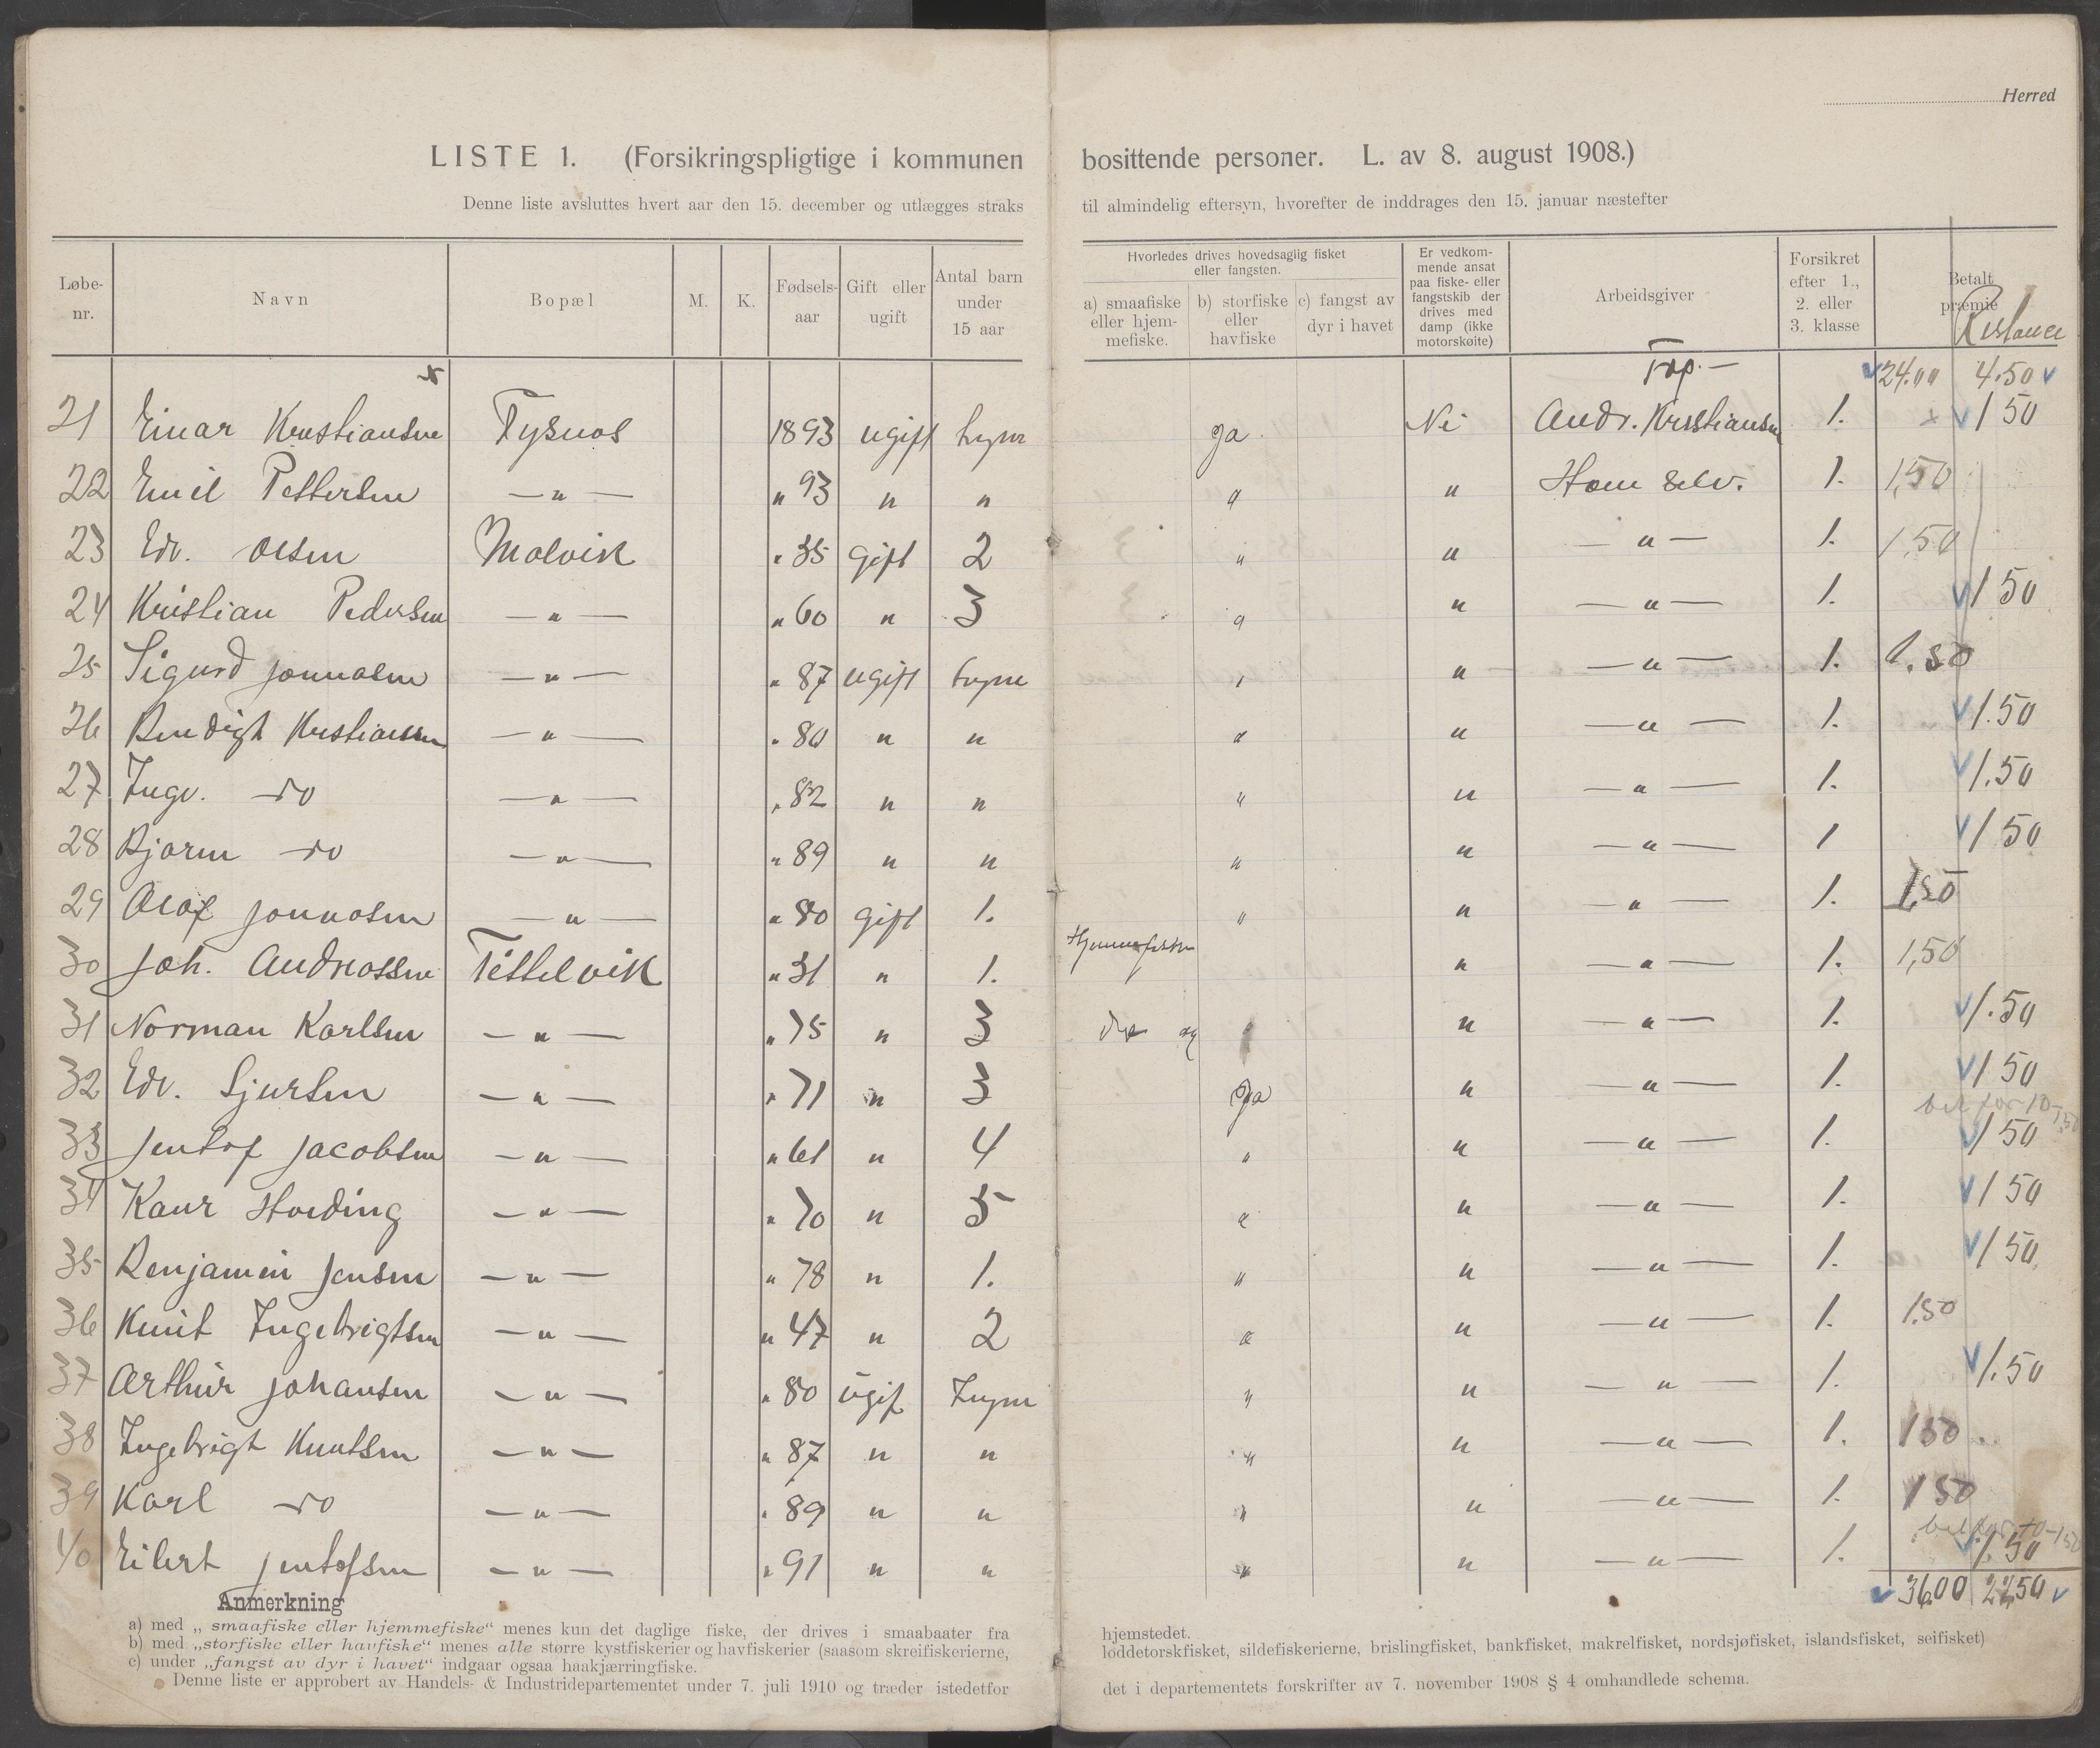 Herred
LISTE 1. (Forsikringspligtige i kommunen bosittende personer. L. av 8. august 1908.)
Denne liste avsluttes hvert aar den 15. december og utlægges straks til almindelig eftersyn, hvorefter de inddrages den 15. januar næstefter
Løbe-nr. Navn Bopæl M. K. Fødsels-aar Gift eller ugift Antal barn under 15 aar Hvorledes drives hovedsaglig fisket eller fangsten. a) smaafiske eller hjem-mefiske. b) storfiske eller havfiske c) fangst av dyr i havet Er vedkom-mende ansat paa fiske- eller fangstskib der drives med damp (ikke motorskøite) Arbeidsgiver Forsikret efter 1., 2. eller 3. klasse Betalt præmie Restance
24.00 4.50
21 Einar Kristiansen Tysnes 1893 ugift Ingen ja Nei Andr. Kristiansen 1. 1 50
22 Emil Pettersen — " — " 93 " " " " Ham selv. 1. 1,50
23 Edv. Olsen Molvik " 35 gift 2 " " — " — 1. 1,50
24 Kristian Pedersen — " — " 60 " 3 " " — " — 1. 1 50
25 Sigurd Jonnasen — " — " 87 ugift Ingen " " — " — 1. 1.50
26 Bendigt Kristiansen — " — " 80 " " " " — " — 1. 1.50
27 Ingv. do — " — " 82 " " " " — " — 1. 1.50
28 Bjarne do — " — " 89 " " " " — " — 1 1 50
29 Olaf Jonnasen — " — " 80 gift 1. " " — " — 1. 1,50
30 Joh. Andreassen Tettelvik " 31 " 1. Hjemmefiske " — " — 1. 1,50
31 Norman Karlsen — " — " 75 " 3 do og " — " — 1. 1.50
32 Edv. Sjursen — " — " 71 " 3 ja " — " — 1. 1 50
33 Jentof Jacobsen — " — " 61 " 4 " " — " — 1. 1 50
34 Kaur Hveding — " — " 70 " 5 " " — " — 1. 1 50
35 Benjamin Jensen — " — " 78 " 1. " " — " — 1. 1 50
36 Knut Ingebrigtsen — " — " 47 " 2 " " — " — 1. 1.50
37 Arthur Johansen — " — " 80 ugif Ingen " " — " — 1. 1.50
38 Ingebrigt Knutsen — " — " 87 " " " " — " — 1. 1 50
39 Karl do — " — " 89 " " " " — " — 1. 1 50
40 Eilert Jentofsen — " — " 91 " " " " — " — 1. 1.50
36.00 22.50
Anmerkning
a) med „smaafiske eller hjemmefiske“ menes kun det daglige fiske, der drives i smaabaater fra hjemstedet.
b) med „storfiske eller havfiske“ menes alle større kystfiskerier og havfiskerier (saasom skreifiskerierne, loddetorskfisket, sildefiskerierne, brislingfisket, bankfisket, makrelfisket, nordsjøfisket, islandsfisket, seifisket)
c) under „fangst av dyr i havet“ indgaar ogsaa haakjærringfiske.
Denne liste er approbert av Handels- & Industridepartementet under 7. juli 1910 og træder istedetfor det i departementets forskrifter av 7. november 1908 § 4 omhandlede schema.